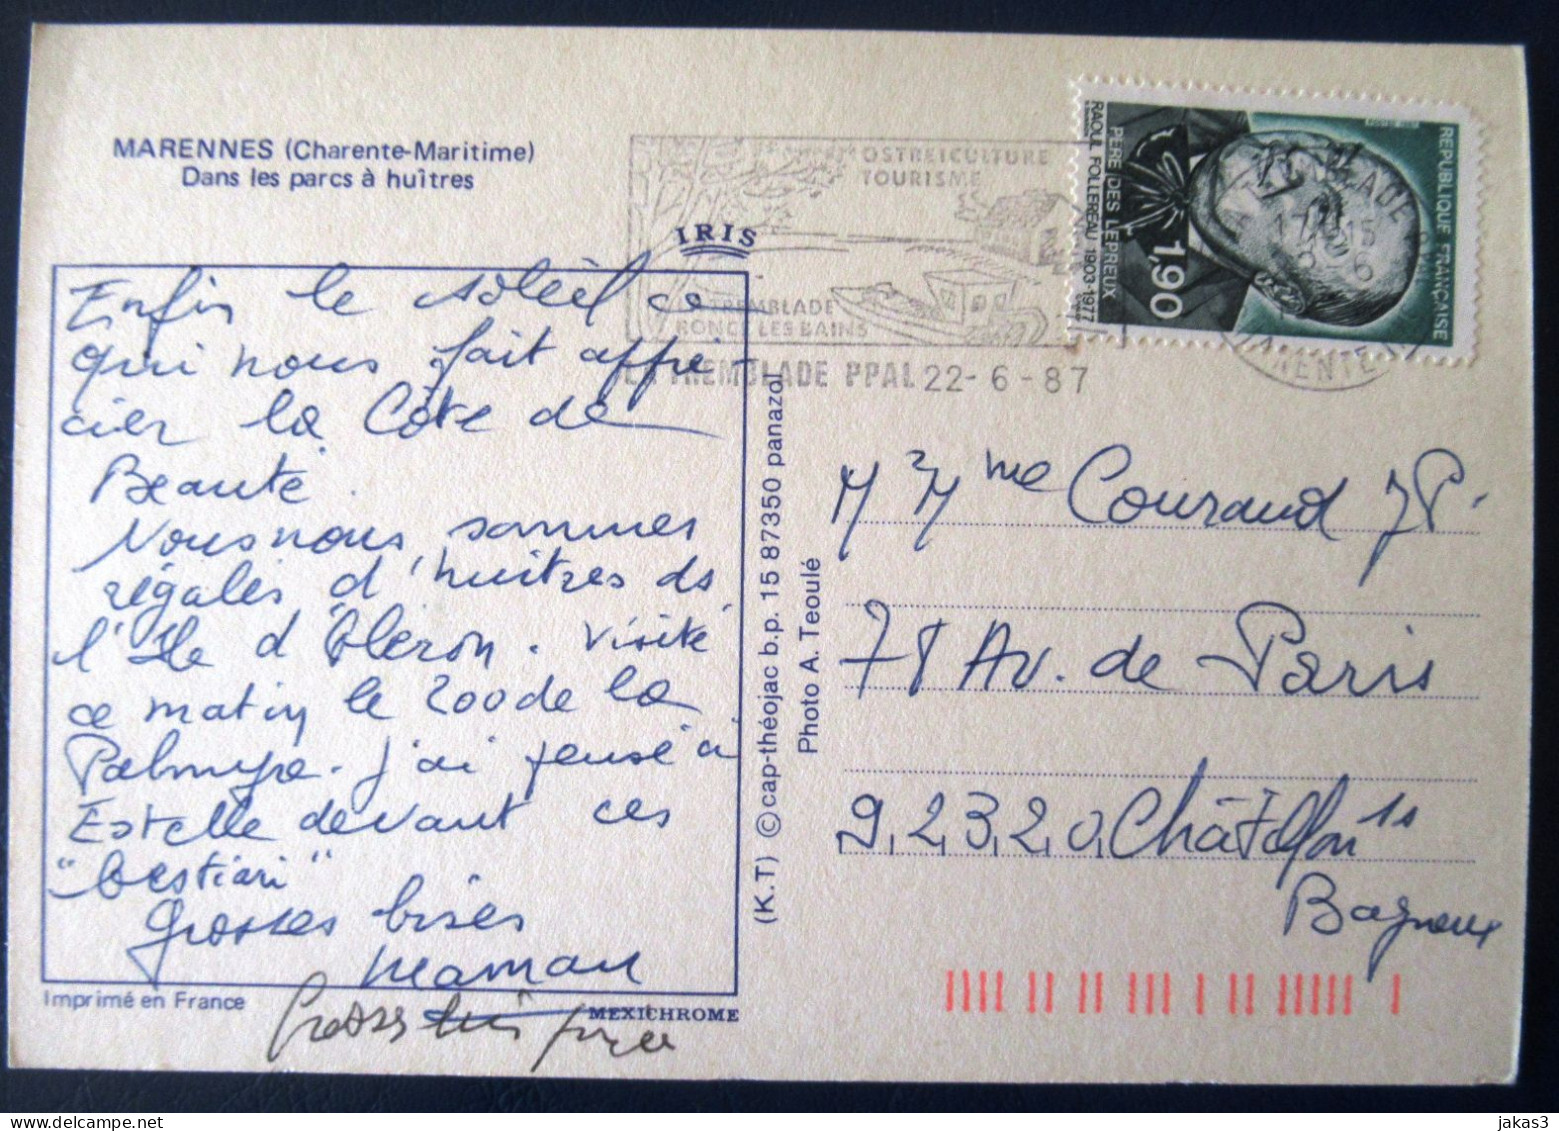 MARENNES (Charente-Maritime)
Dans les parcs à huîtres
IRIS
Enfin le soleil ce
qui nous fait appré-
cier la Côte de
Beauté.
Nous nous sommes
régalés d'huitres ds
l'Ile d'Oléron. Visité
ce matin le zoo de la
Palmyre. J'ai pensé à
Estelle devant ces
"bestiari"
Grosses bises
Maman
Grosses bises
Imprimé en France
MEXICHROME
(K.T) © cap-théojac b.p. 15 87350 panazol
Photo A. Teoulé
OSTREICULTURE
TOURISME
LA TREMBLADE
RONCE LES BAINS
LA TREMBLADE PPAL 22-6-87
REPUBLIQUE FRANÇAISE
1,90
PERE DES LEPREUX
RAOUL FOLLEREAU 1903-1977
M Mme Couraud JP.
78 Av. de Paris
92320 Châtillon s
Bagneux
jakas3